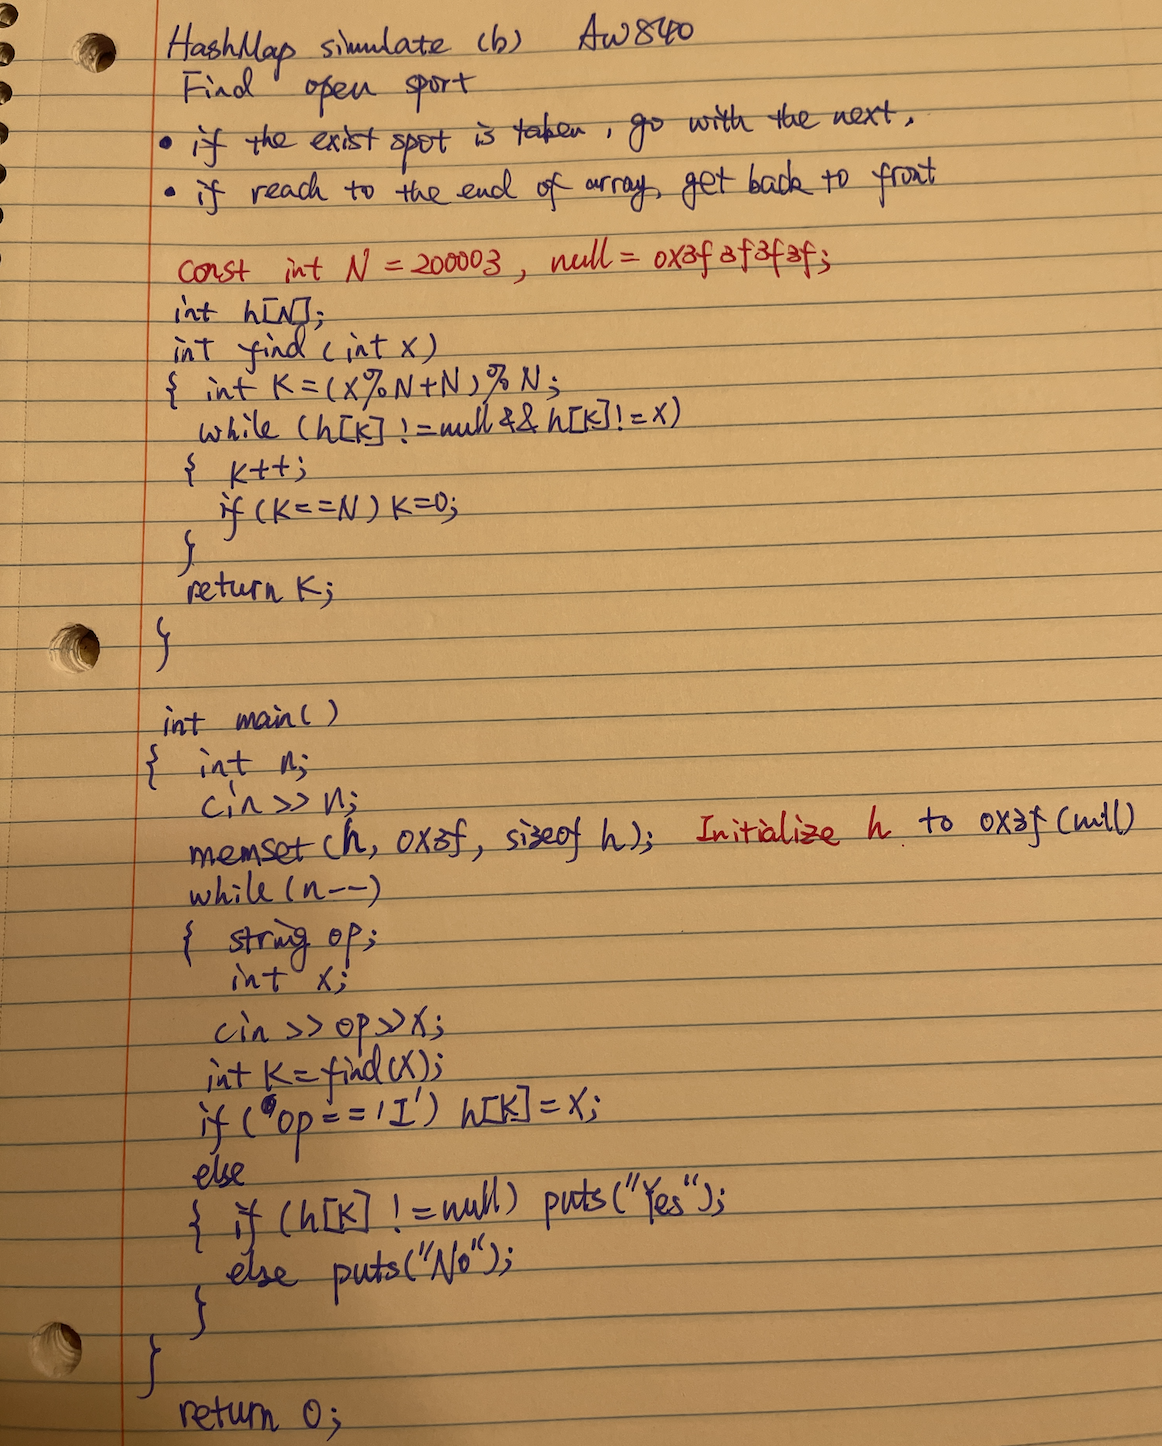 HashMap simulate (b) AW840
Find open sport
• if the exist spot is taken, go with the next.
• if reach to the end of array, get back to front
const int N = 200003, null = 0x3f3f3f3f;
int h[N];
int find (int x)
{ int K = (x%N+N)%N;
while (h[K] != null && h[K] != x)
{ K++;
if (K==N) K=0;
}
return K;
}
int main()
{ int n;
cin >> n;
memset(h, 0x3f, sizeof h); Initialize h to 0x3f (null)
while (n--)
{ string op;
int x;
cin >> op >> x;
int K = find(x);
if (*op == 'I') h[K] = x;
else
{ if (h[K] != null) puts("Yes");
else puts("No");
}
}
return 0;